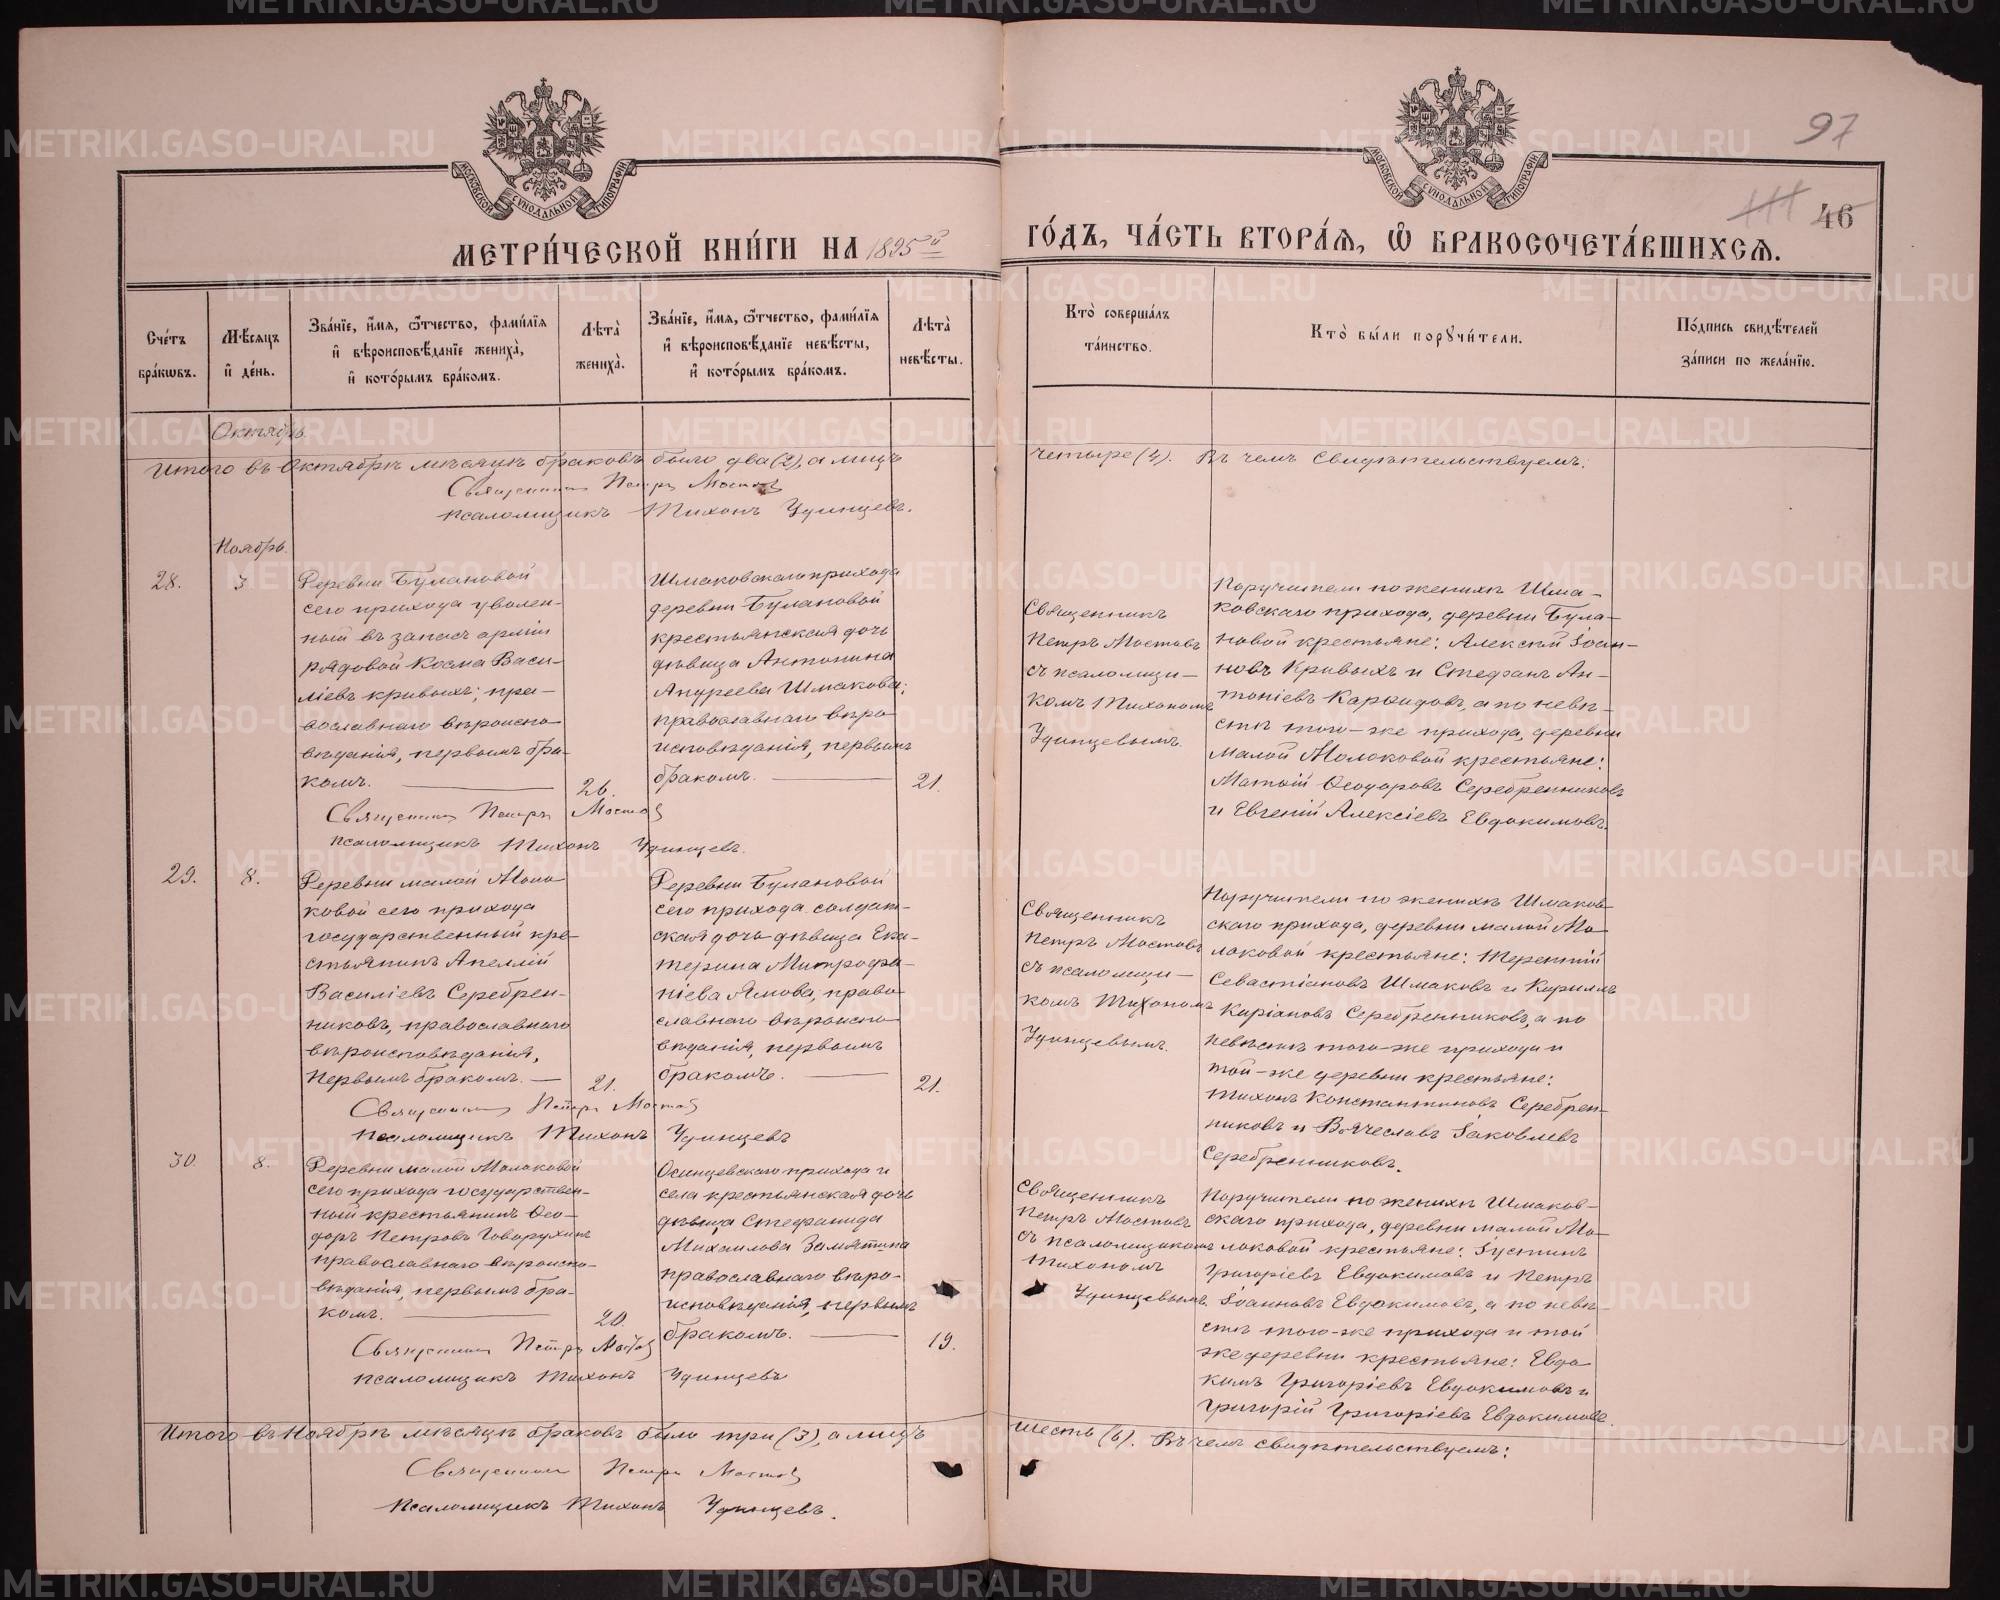 97
111 46
МЕТРИ́ЧЕСКОЙ КНИ́ГИ НА 1895й
ГО́ДЪ, ЧА́СТЬ ВТОРА́Ѧ, Ѿ БРАКОСОЧЕТА́ВШИХСѦ.
Сче́тъ бра́кѡвъ.
Мѣ́сяцъ и҆ де́нь.
Зва́нїе, и҆́мѧ, ѻ҆́тчество, фами́лїѧ и҆ вѣроисповѣ́данїе жениха̀, и҆ кото́рымъ бра́комъ.
Лѣ́та жениха̀.
Зва́нїе, и҆́мѧ, ѻ҆́тчество, фами́лїѧ и҆ вѣроисповѣ́данїе невѣ́сты, и҆ кото́рымъ бра́комъ.
Лѣ́та невѣ́сты.
Кто̀ соверша́лъ та́инство.
Кто̀ бы́ли порꙋчи́тели.
По́дпись свидѣ́телей за́писи по жела́нїю.
Октябрь.
Итого въ Октябрѣ мѣсяцѣ браковъ было два (2), а лицъ
четыре (4). Въ чемъ свидѣтельствуемъ:
Священникъ Петръ Мостовъ
Псаломщикъ Тихонъ Удинцевъ.
Ноябрь.
28.
3
Деревни Булановой
сего прихода уволен-
ный въ запасъ арміи
рядовой Косма Васи-
ліевъ Кривыхъ; пра-
вославнаго вѣроиспо-
вѣданія, первымъ бра-
комъ.
26.
Шмаковскаго прихода
деревни Булановой
крестьянская дочь
дѣвица Антонина
Андреева Шмакова;
православнаго вѣро-
исповѣданія, первымъ
бракомъ.
21.
Священникъ
Петръ Мостовъ
съ псаломщи-
комъ Тихономъ
Удинцевымъ.
Поручители по женихѣ Шма-
ковскаго прихода, деревни Була-
новой крестьяне: Алексій Іоан-
новъ Кривыхъ и Стефанъ Ан-
тоніевъ Караидовъ, а по невѣ-
стѣ того-же прихода, деревни
Малой Молоковой крестьяне:
Матѳій Ѳеодоровъ Серебренниковъ
и Евгеній Алексіевъ Евдокимовъ.
Священникъ Петръ Мостовъ
Псаломщикъ Тихонъ Удинцевъ.
29.
8.
Деревни малой Моло-
ковой сего прихода
государственный кре-
стьянинъ Апеллій
Василіевъ Серебрен-
никовъ, православнаго
вѣроисповѣданія,
первымъ бракомъ.
21.
Деревни Булановой
сего прихода солдат-
ская дочь дѣвица Ека-
терина Митрофа-
ніева Ямова, право-
славнаго вѣроиспо-
вѣданія, первымъ
бракомъ.
21.
Священникъ
Петръ Мостовъ
съ псаломщи-
комъ Тихономъ
Удинцевымъ.
Поручители по женихѣ Шмаков-
скаго прихода, деревни малой Мо-
локовой крестьяне: Терентій
Севастіановъ Шмаковъ и Кириллъ
Киріановъ Серебренниковъ, а по
невѣстѣ того-же прихода и
той-же деревни крестьяне:
Тихонъ Константиновъ Серебрен-
никовъ и Вячеславъ Іаковлевъ
Серебренниковъ.
Священникъ Петръ Мостовъ
Псаломщикъ Тихонъ Удинцевъ
30.
8.
Деревни малой Молоковой
сего прихода государствен-
ный крестьянинъ Ѳео-
доръ Петровъ Говорухинъ
православнаго вѣроиспо-
вѣданія, первымъ бра-
комъ.
20.
Осинцевскаго прихода и
села крестьянская дочь
дѣвица Стефанида
Михаилова Замятина
православнаго вѣро-
исповѣданія, первымъ
бракомъ.
19.
Священникъ
Петръ Мостовъ
съ псаломщикомъ
Тихономъ
Удинцевымъ.
Поручители по женихѣ Шмаков-
скаго прихода, деревни малой Мо-
локовой крестьяне: Іустинъ
Григоріевъ Евдокимовъ и Петръ
Іоанновъ Евдокимовъ, а по невѣ-
стѣ того-же прихода и той
же деревни крестьяне: Евдо-
кимъ Григоріевъ Евдокимовъ и
Григорій Григоріевъ Евдокимовъ.
Священникъ Петръ Мостовъ
Псаломщикъ Тихонъ Удинцевъ
Итого въ Ноябрѣ мѣсяцѣ браковъ было три (3), а лицъ
шесть (6). Въ чемъ свидѣтельствуемъ:
Священникъ Петръ Мостовъ
Псаломщикъ Тихонъ Удинцевъ.
METRIKI.GASO-URAL.RU